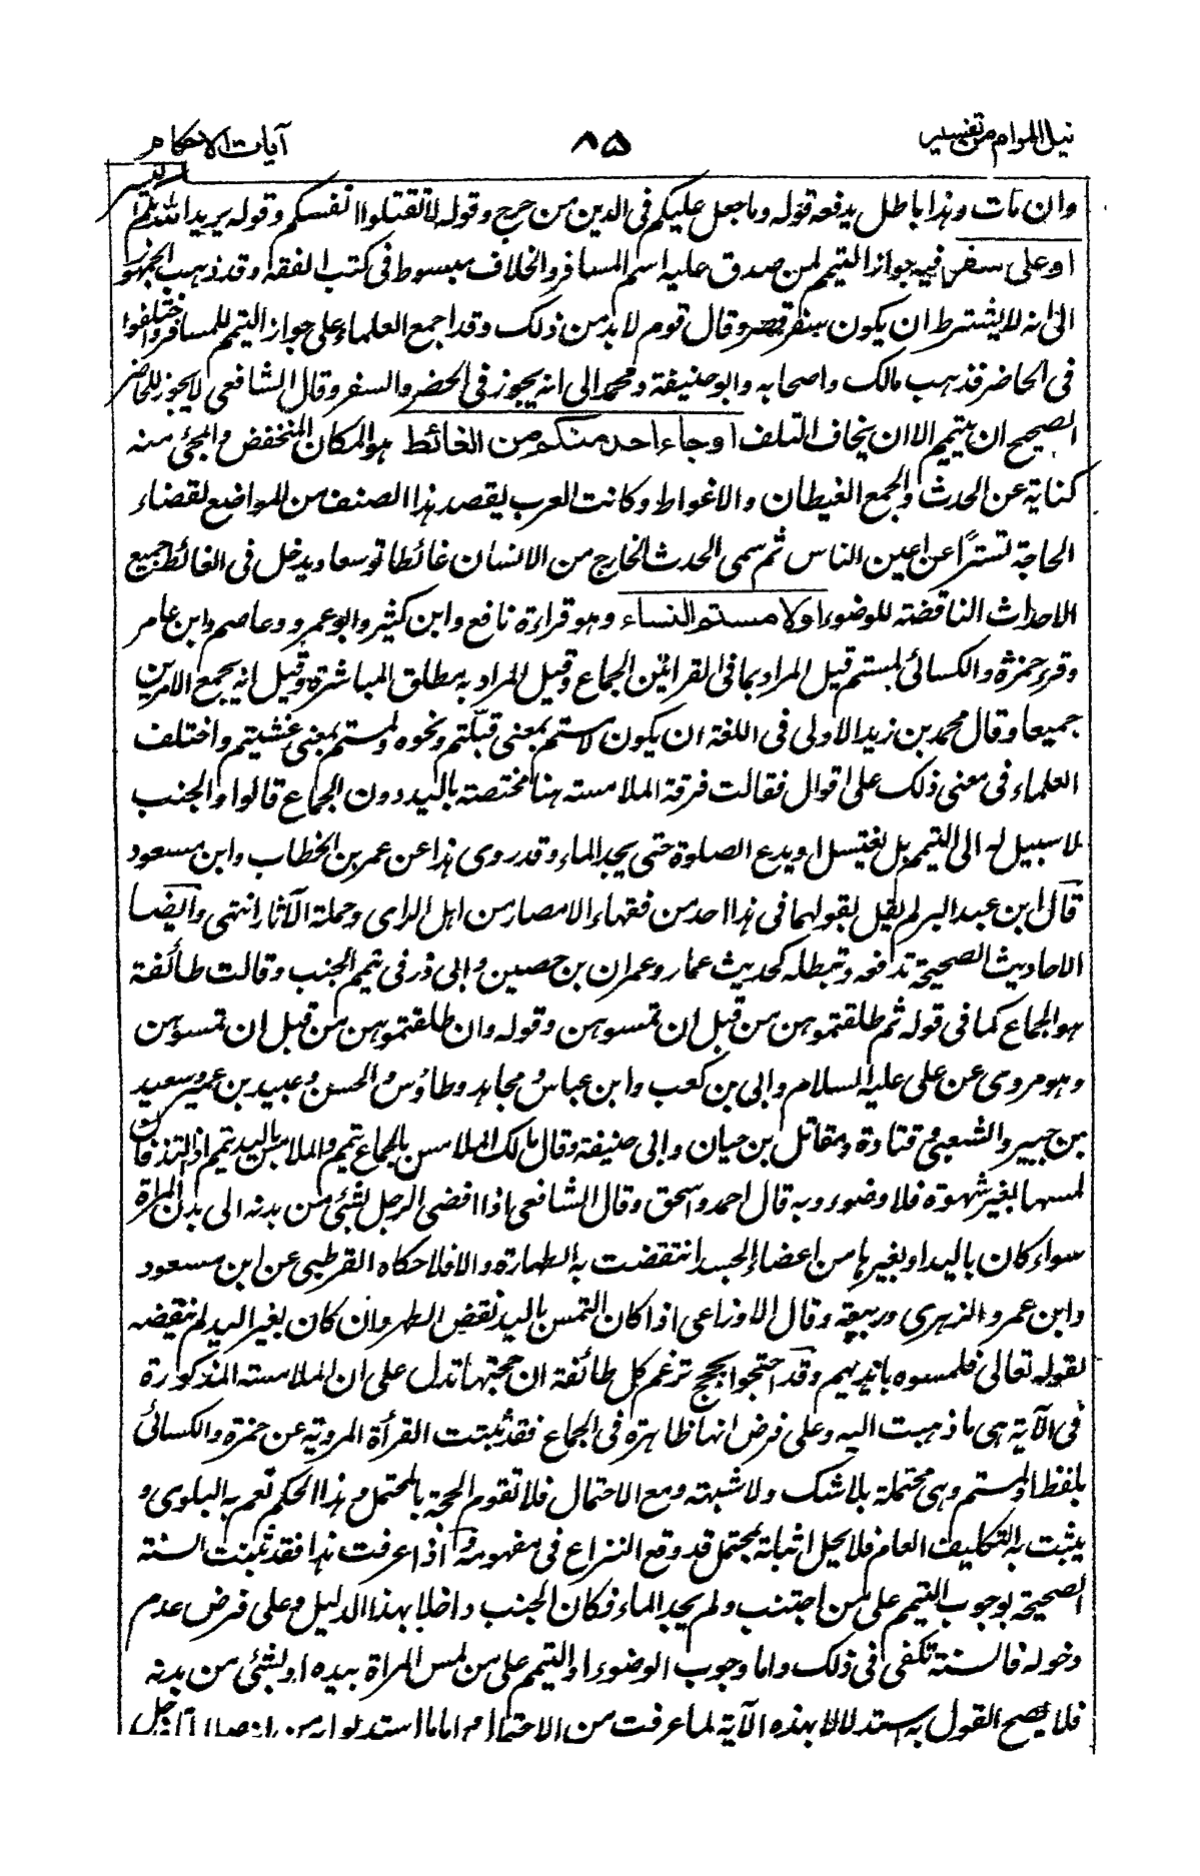 نيل المرام من تفسير
٨٥
آيات الاحكام
وان مات وهذا باطل يدفعه قوله وما جعل عليكم فى الدين من حرج وقوله لا تقتلوا انفسكم وقوله يريد الله بكم اليسر
او على سفر فيه جواز التيمم لمن صدق عليه اسم المسافر والخلاف مبسوط فى كتب الفقه وقد ذهب الجمهور
الى انه لا يشترط ان يكون سفر قصر وقال قوم لا بد من ذلك وقد اجمع العلماء على جواز التيمم للمسافر واختلفوا
فى الحاضر فذهب مالك واصحابه وابو حنيفة ومحمد الى انه يجوز فى الحضر والسفر وقال الشافعى لا يجوز للحاضر
الصحيح ان يتيمم الا ان يخاف التلف او جاء احد منكم من الغائط هو المكان المنخفض والمجئ منه
كناية عن الحدث والجمع الغيطان والاغواط وكانت العرب يقصد هذا الصنف من المواضع لقضاء
الحاجة تسترًا عن اعين الناس ثم سمى الحدث الخارج من الانسان غائطا توسعا ويدخل فى الغائط جميع
الاحداث الناقضة للوضوء او لامستم النساء وهو قراءة نافع وابن كثير وابو عمرو وعاصم وابن عامر
وقرء حمزة والكسائى لمستم قيل المراد بما فى القراتين الجماع وقيل المراد به مطلق المباشرة وقيل انه يجمع الامرين
جميعا وقال محمد بن زيد الاولى فى اللغة ان يكون لامستم بمعنى قبلتم ونحوه ولمستم بمعنى غشيتم واختلف
العلماء فى معنى ذلك على اقوال فقالت فرقة الملامسة هنا مختصة باليد دون الجماع قالوا والجنب
لا سبيل له الى التيمم بل يغتسل او يدع الصلوة حتى يجد الماء وقد روى هذا عن عمر بن الخطاب وابن مسعود
قال ابن عبد البر لم يقل بقولهما فى هذا احد من فقهاء الامصار من اهل الراى وحملة الآثار انتهى وايضا
الاحاديث الصحيحة تدفعه وتبطله كحديث عمار وعمران بن حصين وابى ذر فى تيمم الجنب وقالت طائفة
هو الجماع كما فى قوله ثم طلقتموهن من قبل ان تمسوهن وقوله وان طلقتموهن من قبل ان تمسوهن
وهو مروى عن على عليه السلام وابى بن كعب وابن عباس ومجاهد وطاؤس والحسن وعبيد بن عمير وسعيد
بن جبير والشعبى وقتادة ومقاتل بن حيان وابى حنيفة وقال مالك الملامس بالجماع يتيمم والملامس باليد يتيمم اذا التذ فان كان
لمسها بغير شهوة فلا وضوء وبه قال احمد واسحق وقال الشافعى اذا افضى الرجل بشئ من بدنه الى بدن المراة
سواء كان باليد او بغيرها من اعضاء الجسد انتقضت به الطهارة والا فلا حكاه القرطبى عن ابن مسعود
وابن عمر والزهرى وربيعة وقال الاوزاعى اذا كان اللمس باليد نقض الطهر وان كان بغير اليد لم ينقضه
لقوله تعالى فلمسوه بايديهم وقد احتجوا بحجج تزعم كل طائفة ان حجتها تدل على ان الملامسة المذكورة
فى الآية هى ما ذهبت اليه وعلى فرض انها ظاهرة فى الجماع فقد ثبتت القرأة المروية عن حمزة والكسائى
بلفظ او لمستم وهى محتملة بلا شك ولا شبهة ومع الاحتمال فلا تقوم الحجة بالمحتمل وهذا الحكم تعم به البلوى و
يثبت به التكليف العام فلا يحل اثباته بمحتمل قد وقع النزاع فى مفهومه واذا عرفت هذا فقد ثبتت السنة
الصحيحة بوجوب التيمم على من اجتنب ولم يجد الماء فكان الجنب داخلا بهذا الدليل وعلى فرض عدم
دخوله فالسنة تكفى فى ذلك واما وجوب الوضوء او التيمم على من لمس المراة بيده او بشئ من بدنه
فلا يصح القول به استدلالا بهذه الآية لما عرفت من الاحتمال واما ما استدلوا به من